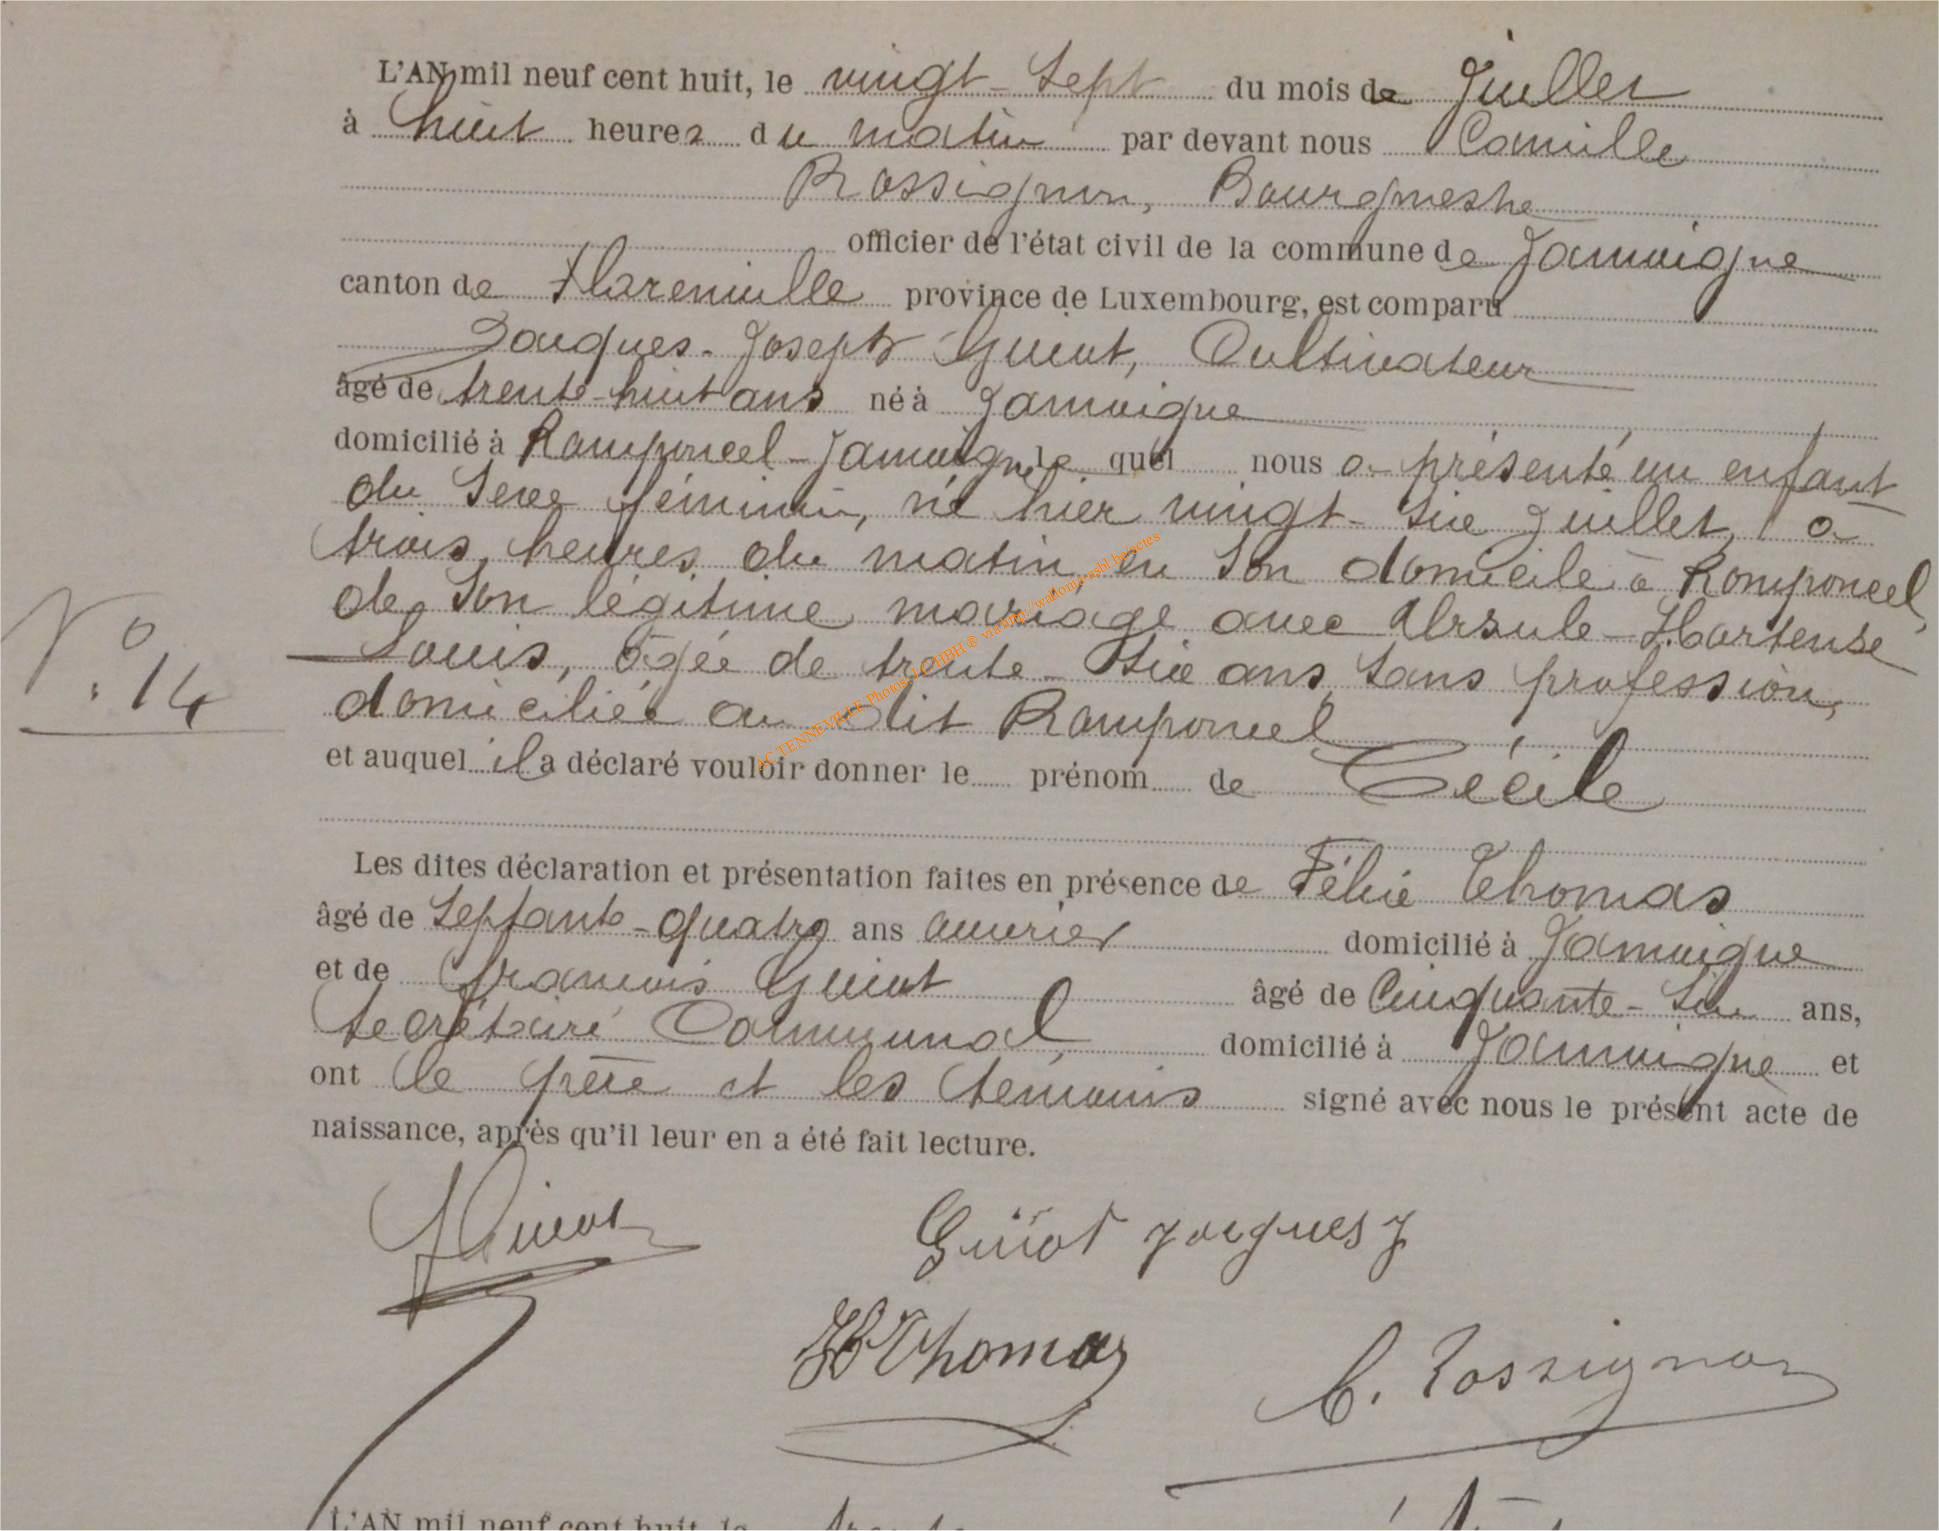 L'AN mil neuf cent huit, le vingt-sept du mois de Juillet
à huit heures du matin par devant nous Camille
Rossignon, Bourgmestre
officier de l'état civil de la commune de Jamoigne
canton de Florenville province de Luxembourg, est comparu
Jacques-Joseph Guiot, Cultivateur
âgé de trente-huit ans né à Jamoigne
domicilié à Romponcel-Jamoigne le quel nous a présenté un enfant
du Sexe féminin, né hier vingt-six Juillet, à
trois heures du matin en Son domicile à Romponcel,
de Son légitime mariage avec Ursule-Hortense
Louis, âgée de trente-six ans, Sans profession,
domiciliée au dit Romponcel
et auquel il a déclaré vouloir donner le prénom de Cécile
N° 14
Les dites déclaration et présentation faites en présence de Félix Thomas
âgé de Septante-quatre ans ouvrier domicilié à Jamoigne
et de françois Guiot âgé de Cinquante-six ans,
Secrétaire Communal, domicilié à Jamoigne et
ont le père et les témoins signé avec nous le présent acte de
naissance, après qu'il leur en a été fait lecture.
Guiot Guiot jacques j
Thomas C. Rossignon
L'AN mil neuf cent huit, le trente